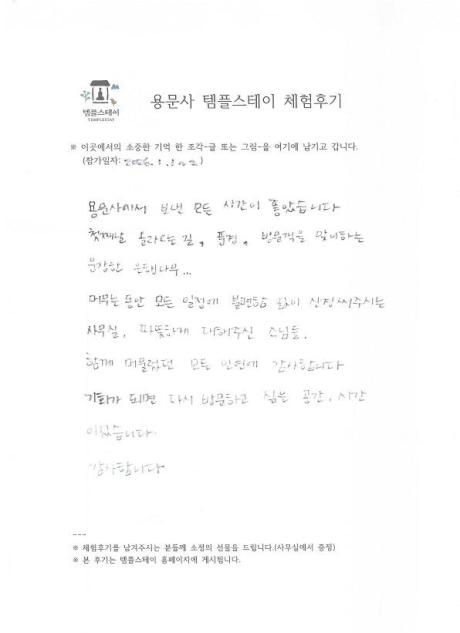 템플스테이
TEMPLESTAY
용문사 템플스테이 체험후기
※ 이곳에서의 소중한 기억 한 조각-글 또는 그림-을 여기에 남기고 갑니다.
(참가일자: 2026. 1. )
용문사에서 보낸 모든 시간이 좋았습니다
첫째날 올라오는 길, 풍경, 방문객을 맞이하는
웅장한 은행나무...
머무는 동안 모든 일정에 불편함 없이 신경써주시는
사무실, 따뜻하게 대해주신 스님들,
함께 머물렀던 모든 인연에 감사합니다
기회가 되면 다시 방문하고 싶은 공간, 시간
이었습니다.
감사합니다
---
※ 체험후기를 남겨주시는 분들께 소정의 선물을 드립니다.(사무실에서 증정)
※ 본 후기는 템플스테이 홈페이지에 게시됩니다.